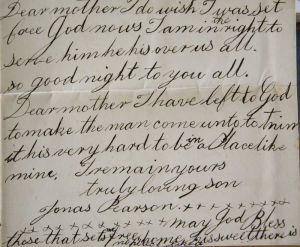 Dear mother I do wish I was set
free God nows I am in the right to
serve him he his over us all.
so good night to you all.
Dear mother I have left to God
to make the man come unto to trim
it his very hard to be in a Place like
mine. I remain yours
truly loving son
Jonas Pearson.
may God Bless
those that sets me
his sweet there is